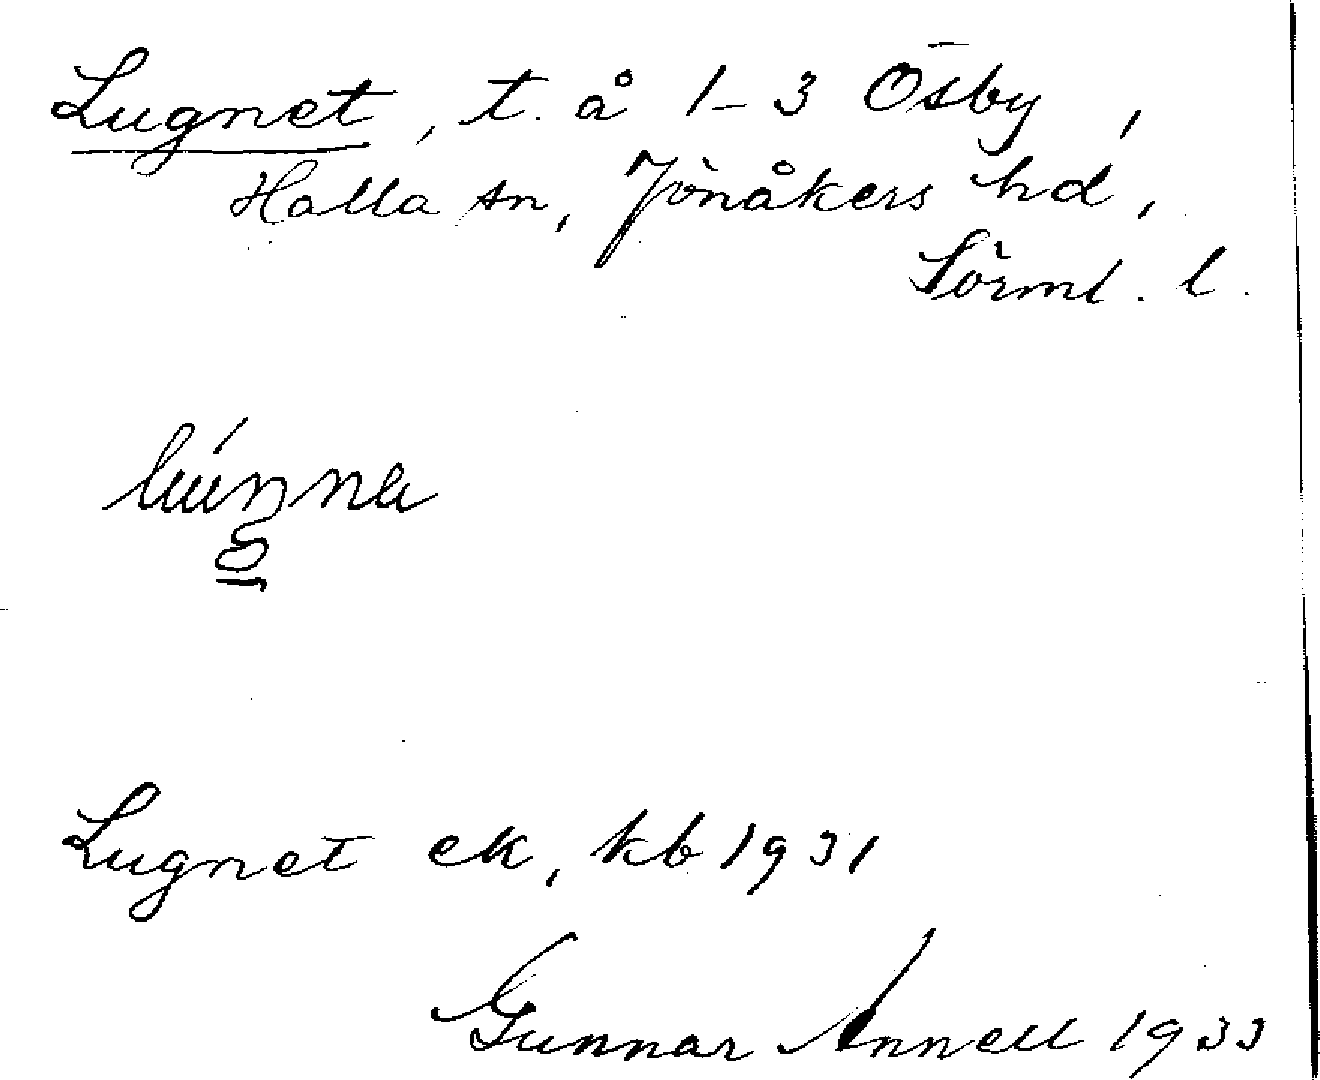 Lugnet, t. å 1-3 Ösby,
Halla sn, Jönåkers hd,
Sörml. l.
Lugnet ek, kb 1931
Gunnar Annell 1933